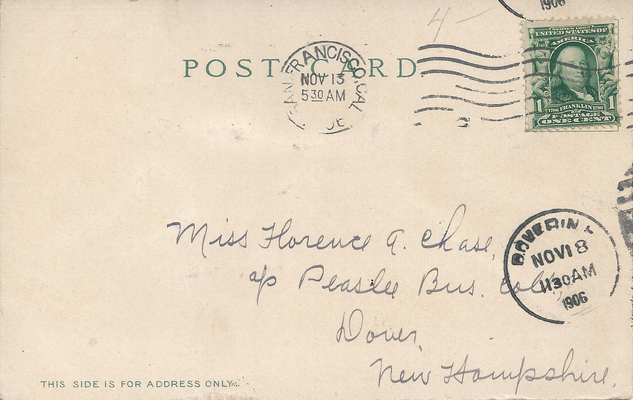 1906
4-
POST CARD
SAN FRANCISCO, CAL
NOV 13
530 AM
UNITED STATES OF
AMERICA
1 FRANKLIN 1
POSTAGE
ONE CENT
DOVER N
NOV 18
1130AM
1906
Miss Florence A. Chase,
c/o Peaslee Bus. Coll.
Dover,
New Hampshire.
THIS SIDE IS FOR ADDRESS ONLY